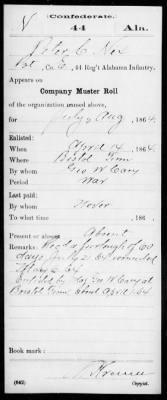 (Confederate.)
44 Ala.
Peter C. Nix
Pvt, Co. E, 44 Reg't Alabama Infantry.
Appears on
Company Muster Roll
of the organization named above,
for July & Aug, 1864.
Enlisted:
When April 14, 1864.
Where Bristol Tenn
By whom Geo W Cary
Period War
Last paid:
By whom Never
To what time , 186 .
Present or absent Absent
Remarks: Rec'd a furlough of 60
days July 2 64 wounded
May 6 64
Enlisted by Maj Geo W Cary at
Bristol Tenn about April /64
Book mark:
(642)